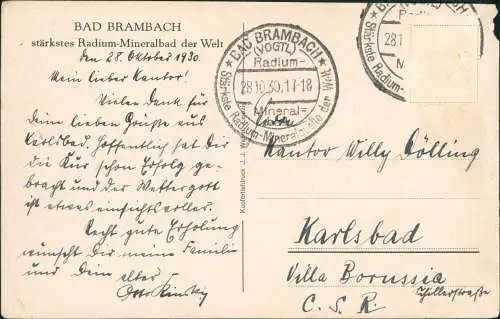 BAD BRAMBACH
stärkstes Radium-Mineralbad der Welt
den 28. Oktober 1930.
Mein lieber Kantor!
Vielen Dank für
Deine lieben Grüße aus
Karlsbad. Hoffentlich hat Dir
die Kur schon Erfolg ge-
bracht und der Wettergott
ist etwas einsichtsvoller.
Recht gute Erholung
wünscht Dir meine Familie
und Dein alter
Otto Kinsky
BAD BRAMBACH
(VOGTL)
Radium-
28.10.30.17-18
Mineral=
Stärkste Radium-Mineralquelle der Welt
Radium-
28.1
M
Stärkste Radium-
Kupfertiefdruck J. J. W
Kantor Willy Dölling
Karlsbad
Villa Borussia
Schillerstraße
C. S. R.